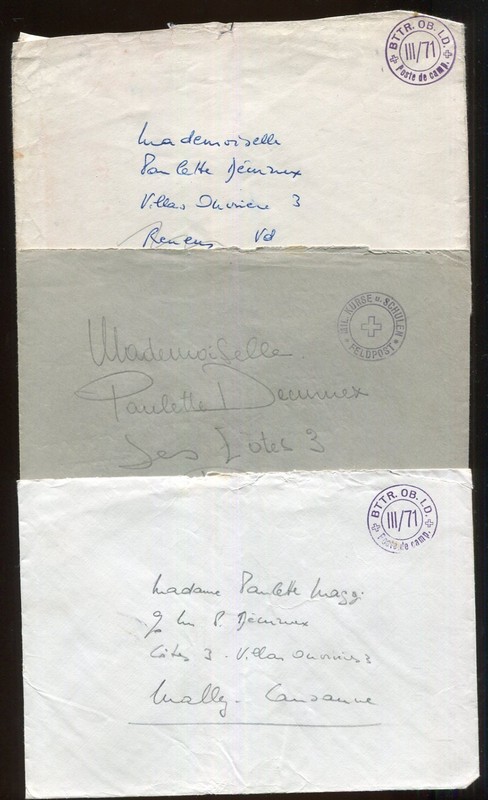 BTTR. OB. LD.
III/71
Poste de camp.
Mademoiselle
Paulette Décimux
Villas Ouvriere 3
Renens Vd
MIL. KURSE u. SCHULEN
FELDPOST
Mademoiselle
Paulette
Les Côtes 3
BTTR. OB. LD.
III/71
Poste de camp.
Madame Paulette Maggi
P.
Côtes 3 - Villas Ouvrières 3
Lausanne